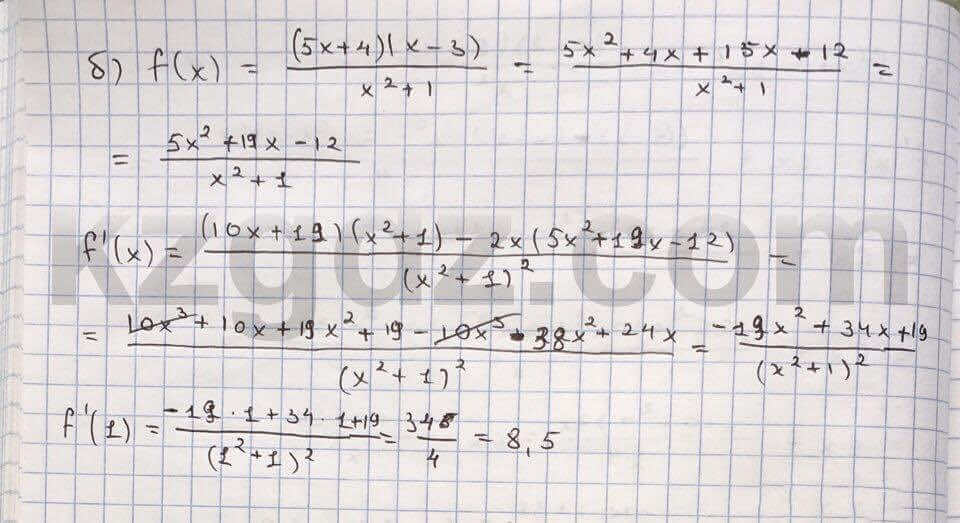 б) f(x) = (5x+4)(x-3) / x²+1 = 5x²+4x+15x-12 / x²+1 =
= 5x²+19x-12 / x²+1
f'(x) = (10x+19)(x²+1) - 2x(5x²+19x-12) / (x²+1)² =
= 10x³+10x+19x²+19-10x³-38x²+24x / (x²+1)² = -19x²+34x+19 / (x²+1)²
f'(1) = -19·1+34·1+19 / (1²+1)² = 34 / 4 = 8,5
kzgdz.com